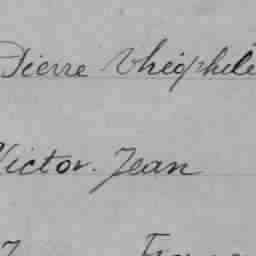 Pierre Théophile
Victor. Jean